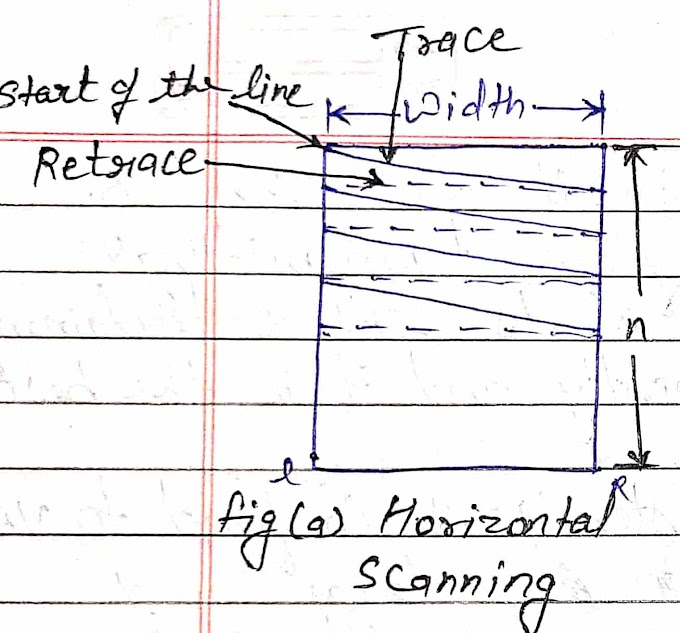 Trace
Start of the line
Width
Retrace
n
l
R
fig(a) Horizontal
Scanning